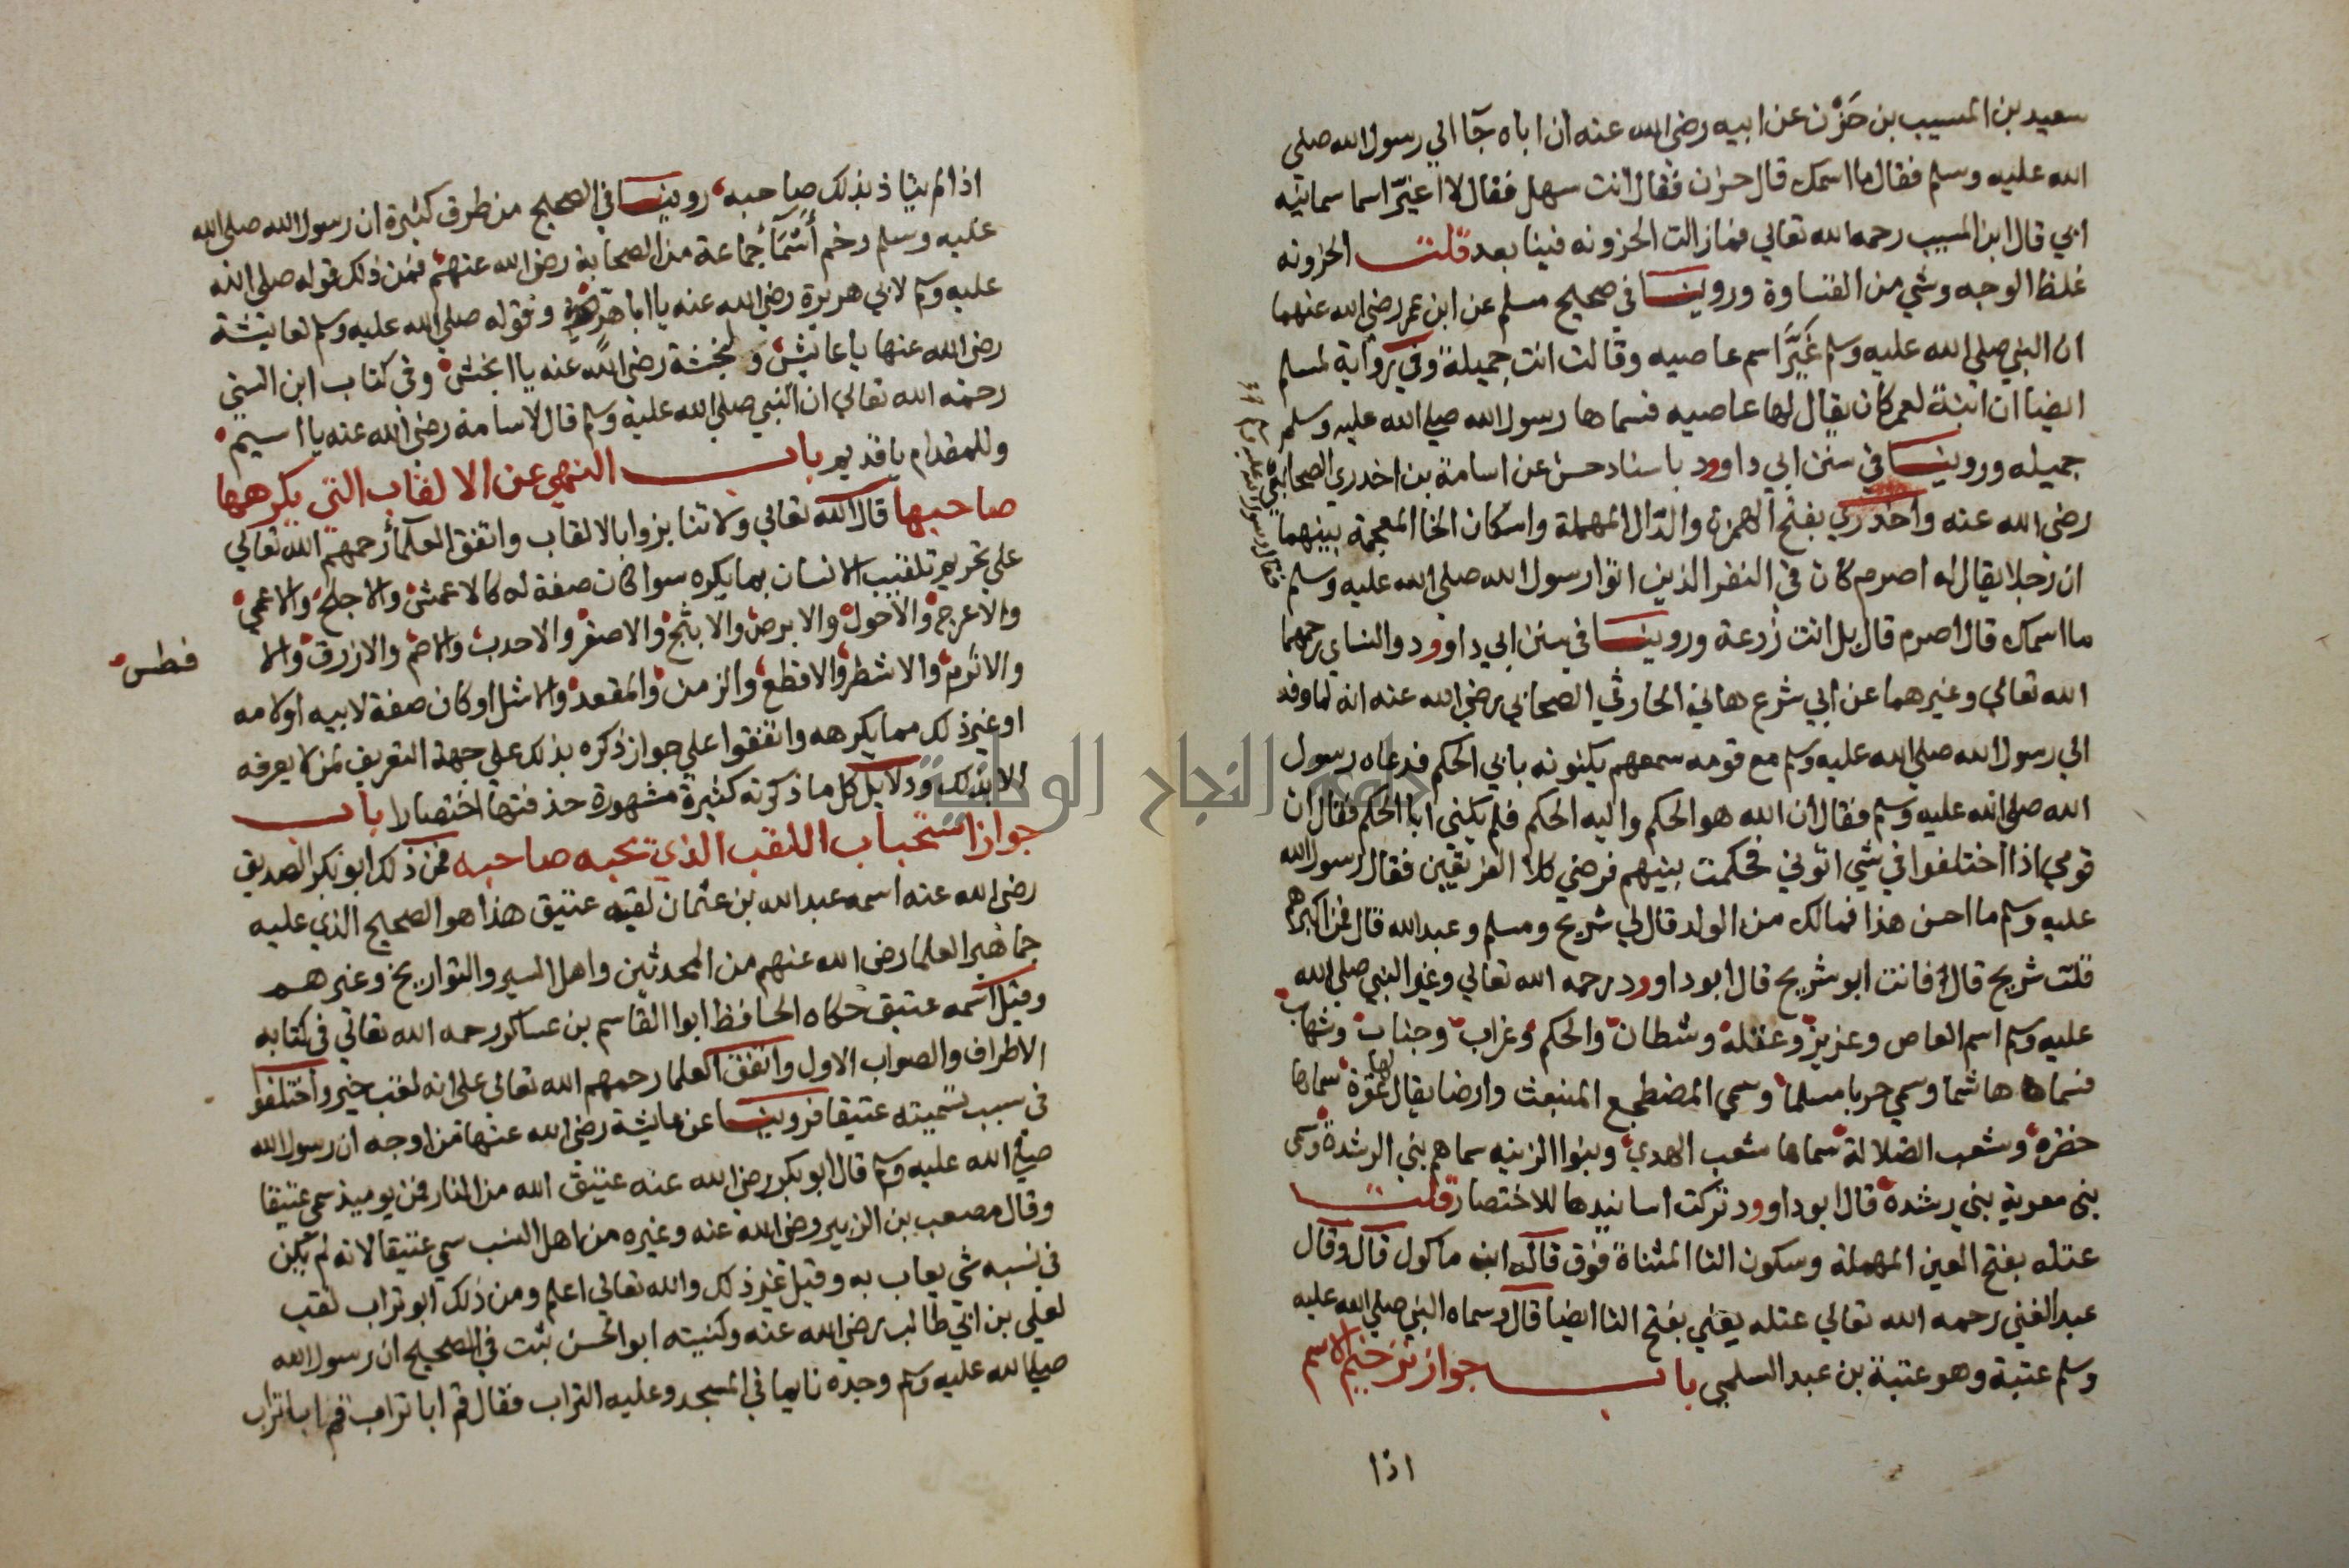 سعيد بن المسيب بن حَزْن عن ابيه رضى الله عنه ان اباه جآ الي رسول الله صلي
الله عليه وسلم فقال ما اسمك قال حزن فقال انت سهل فقال لا اغيّر اسما سمانيه
ابي قال ابن المسيب رحمه الله تعالي فما زالت الحزونه فينا بعد قلت الحزونه
غلظ الوجه وشي من القساوة وروينا في صحيح مسلم عن ابن عمر رضي الله عنهما
ان النبي صلي الله عليه وسلم غيَّر اسم عاصيه وقالت انت جميلة وفي رواية لمسلم
ايضا ان ابنة لعمر كان يقال لها عاصيه فسماها رسول الله صلي الله عليه وسلم
جميله وروينا في سنن ابي داوود باسناد حسن عن اسامة بن اخدري الصحابي
رضي الله عنه واخدري بفتح الهمزة والدال المهملة واسكان الخا المعجمة بينهما
ان رجلا يقال له اصرم كان في النفر الذين اتوا رسول الله صلي الله عليه وسلم
فقال رسول الله
ما اسمك قال اصرم قال بل انت زُرعة وروينا في سنن ابي داوود والنساي رحمهما
الله تعالي وغيرهما عن ابي شرع هاني الحارثي الصحابي رضي الله عنه انه لما وفد
الي رسول الله صلي الله عليه وسلم مع قومه سمعهم يكنونه بابي الحكم فدعاه رسول
الله صلي الله عليه وسلم فقال ان الله هو الحكم واليه الحكم فلم يكني ابا الحكم فقال ان
قومي اذا اختلفوا في شي اتوني فحكمت بينهم فرضي كلا الفريقين فقال رسول الله
عليه وسلم ما احسن هذا فمالك من الولد قال لي شريح ومسلم وعبد الله قال فمن اكبرهم
قلت شريح قال فانت ابو شريح قال ابو داوود رحمه الله تعالي وغير النبي صلي الله
عليه وسلم اسم العاص وعزيز وعتله وشطان والحكم وغراب وجناب وشهاب
فسماه هاشما وسمي حربا مسلما وسمي المضطجع المنبعث وارضا يقال لها عقرة سماها
خضره وشعب الضلالة سماها شعب الهدي وبنوا الزنيه سماهم بني الرشدة وسمي
بني معوية بني رشده قال ابو داوود تركت اسانيدها للاختصار قلت
عتله بفتح العين المهملة وسكون التا المثناة فوق قاله ابن ماكول قال وقال
عبد الغني رحمه الله تعالي عتله يعني بفتح التا ايضا قال وسماه النبي صلي الله عليه
وسلم عتبة وهو عتبة بن عبد السلمي باب جواز ترخيم الاسم
اذا
اذا لم يتاذ بذلك صاحبه روينا في الصحيح من طرق كثيرة ان رسول الله صلي الله
عليه وسلم رخم أسْمَآ جماعة من الصحابة رضي الله عنهم فمن ذلك قوله صلي الله
عليه وسلم لابي هريرة رضي الله عنه يا ابا هر وقوله صلي الله عليه وسلم لعايشة
رضي الله عنها يا عايش ولانجشة رضي الله عنه يا انجش وفي كتاب ابن السني
رحمه الله تعالي ان النبي صلي الله عليه وسلم قال لاسامة رضي الله عنه يا اسيم
وللمقدام يا قديم باب النهي عن الالقاب التي يكرهها
صاحبها قال الله تعالي ولا تنابزوا بالالقاب واتفق العلمآ رحمهم الله تعالي
علي تحريم تلقيب الانسان بما يكره سوا كان صفة له كالاعمش والاجلح والاعمي
والاعرج والاحول والابرص والابثج والاصفر والاحدب والاصم والازرق والا
فطس
والاثرم والاشطر والاقطع والزمن والمقعد والاشل او كان صفة لابيه او لامه
او غير ذلك مما يكرهه واتفقوا علي جواز ذكره بذلك علي جهة التعريف لمن لا يعرفه
الا بذلك ودلايل كل ما ذكرته كثيرة مشهورة حذفتها اختصارا باب
جواز استحباب اللقب الذي يحبه صاحبه فمن ذلك ابو بكر الصديق
رضي الله عنه اسمه عبد الله بن عثمان لقبه عتيق هذا هو الصحيح الذي عليه
جماهير العلما رضي الله عنهم من المحدثين واهل السير والتواريخ وغيرهم
وقيل اسمه عتيق حكاه الحافظ ابوا القاسم بن عساكر رحمه الله تعالي في كتابه
الاطراف والصواب الاول واتفق العلما رحمهم الله تعالي علي انه لقب خير واختلفوا
في سبب تسميته عتيقا فروينا عن عايشة رضي الله عنها من اوجه ان رسول الله
صلي الله عليه وسلم قال ابو بكر رضي الله عنه عتيق الله من النار فمن يوميذ سمي عتيقا
وقال مصعب بن الزبير رضي الله عنه وغيره من اهل النسب سمي عتيقا لانه لم يكن
في نسبه شي يعاب به وقيل غير ذلك والله تعالي اعلم ومن ذلك ابو تراب لقب
لعلي بن ابي طالب رضي الله عنه وكنيته ابو الحسن ثبت في الصحيح ان رسول الله
صلي الله عليه وسلم وجده نايما في المسجد وعليه التراب فقال قم ابا تراب قم ابا تراب
جامعة النجاح الوطنية